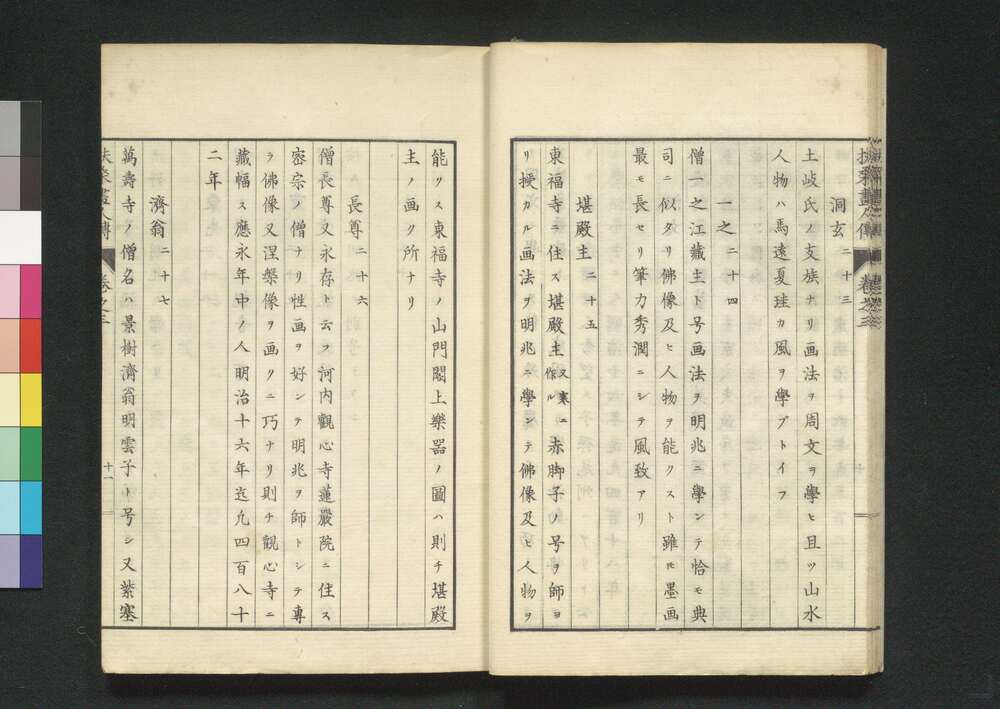 洞玄 二十三
土岐氏ノ支族ナリ画法ヲ周文ヲ學ヒ且ツ山水
人物ハ馬遠夏珪カ風ヲ學ブトイフ
一之 二十四
僧一之江藏主ト号画法ヲ明兆ニ學ンテ恰モ典
司ニ似タリ佛像及ヒ人物ヲ能クスト雖ㇳモ墨画
最モ長セリ筆力秀潤ニシテ風致アリ
堪殿主 二十五
東福寺ニ住ス堪殿主又寒ニ作ル赤脚子ノ号ヲ師ヨ
リ授カル画法ヲ明兆ニ學ンテ佛像及ヒ人物ヲ
能クス東福寺ノ山門閣上樂器ノ圖ハ則チ堪殿
主ノ画ク所ナリ
長尊 二十六
僧長尊又永存ト云フ河内觀心寺蓮嚴院ニ住ス
密宗ノ僧ナリ性画ヲ好ンテ明兆ヲ師トシテ專
ラ佛像又涅槃像ヲ画クニ巧ナリ則チ觀心寺ニ
藏幅ス應永年中ノ人明治十六年迄九四百八十
二年
濟翁 二十七
萬壽寺ノ僧名ハ景樹濟翁明雲子ト号シ又紫塞
扶桑畫人傳 卷之三 十一